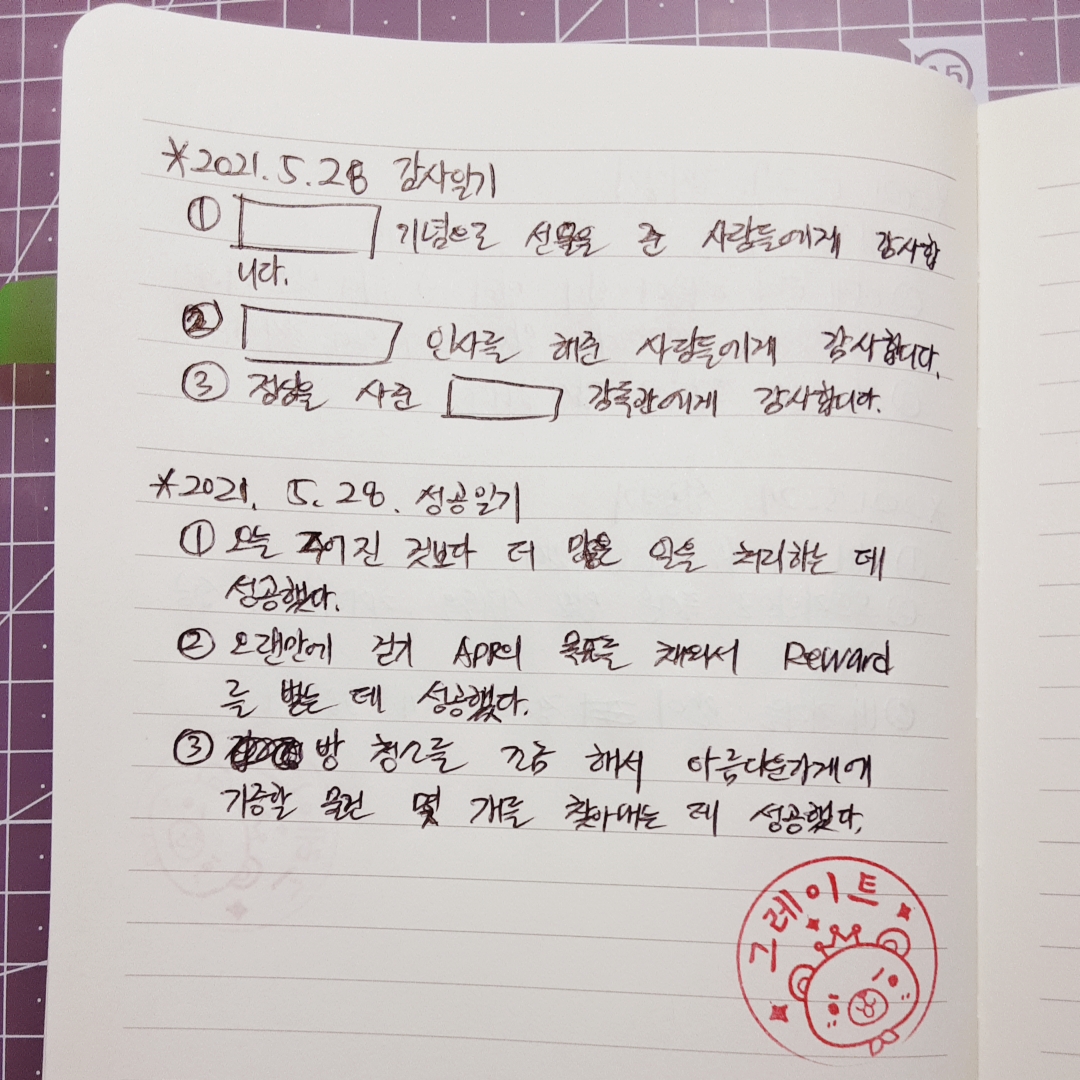 *2021. 5. 28 감사일기
① 기념으로 선물을 준 사람들에게 감사합
니다.
② 인사를 해준 사람들에게 감사합니다.
③ 점심을 사준 감독관에게 감사합니다.
*2021. 5. 28. 성공일기
① 오늘 주어진 것보다 더 많은 일을 처리하는 데
성공했다.
② 오랜만에 걷기 APP의 목표를 채워서 Reward
를 받는 데 성공했다.
③ 방 청소를 조금 해서 아름다운가게에
기증할 물건 몇 개를 찾아내는 데 성공했다.
그레이트